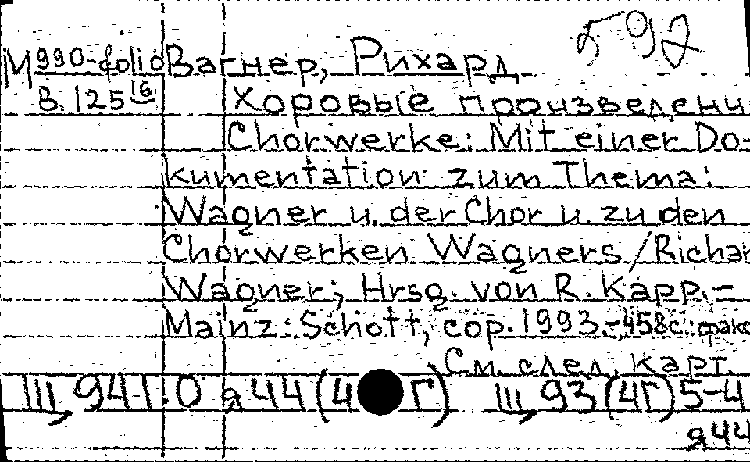 592
М 990-folio Вагнер, Рихард
В. 125 16 Хоровые произведени
Chorwerke: Mit einer Do-
kumentation zum Thema:
Wagner u. der Chor u. zu den
Chorwerken Wagners / Richar
Wagner; Hrsg. von R. Kapp. –
Mainz: Schott, cop. 1993. – 458с.: факс
См. след. карт.
Ш 94-Г.0 я44 (4 Г) Ш 93(4Г)5-4
я44